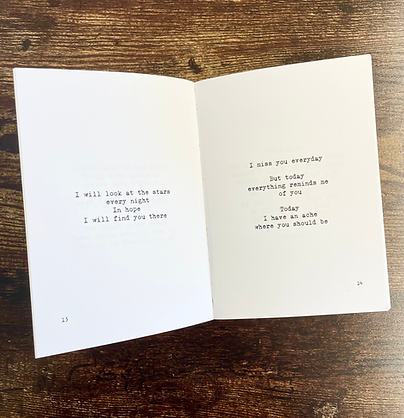 I will look at the stars
every night
In hope
I will find you there
13
I miss you everyday
But today
everything reminds me
of you
Today
I have an ache
where you should be
14